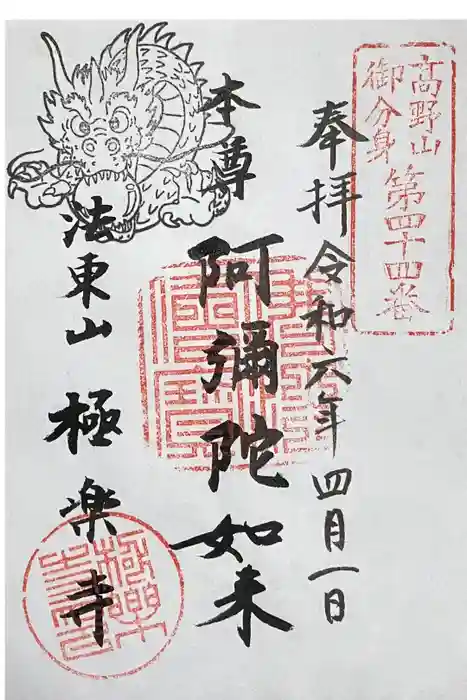 高野山
御分身
第四十四巻
奉拝 令和六年 四月一日
本尊
阿彌陀如来
法東山 極楽寺
極樂寺